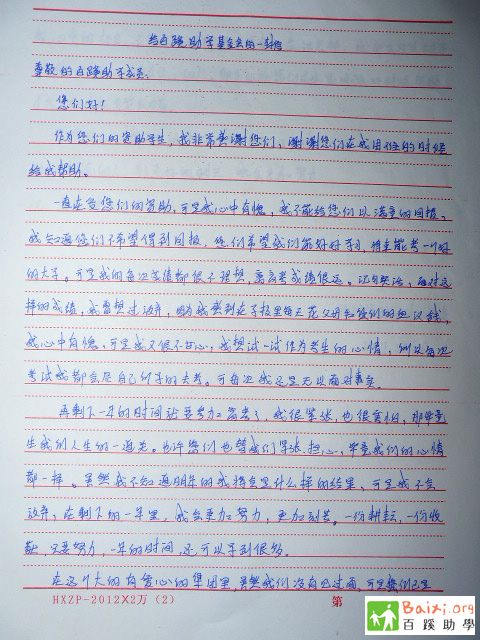 给百蹊助学基金会的一封信
尊敬的百蹊助学成员:
您们好!
作为您们的资助学生,我非常感谢您们,谢谢您们在我困难的时候
给我帮助。
一直在受您们的资助,可是我心中有愧,我不能给您们以满意的回报。
我知道您们不希望得到回报,您们希望我们能好好学习,将来能考一所好
的大学。可是我的每次成绩都很不理想,离高考成绩很远。还有英语,面对这
样的成绩,我曾想过放弃,因为我感到在学校里每天花父母和您们的血汗钱,
我心中有愧。可是我又很不甘心,我想试一试作为考生的心情,所以每次
考试我都会尽自己所学的去考。可每次我还是无以面对事实。
再剩下一年的时间就要参加高考了,我很紧张,也很害怕,那毕竟
是我们人生的一道关。也许您们也替我们紧张、担心,毕竟我们的心情
都一样。虽然我不知道明年的我将会是什么样的结果,可是我不会
放弃,在剩下的一年里,我会更加努力,更加刻苦。一份耕耘,一份收
获,只要努力,一年的时间,还可以学到很多。
在这个大的有爱心的集团里,虽然我们没有见过面,可是我们已是
HXZP-2012X2万(2)
第
Baixi.org
百蹊助學